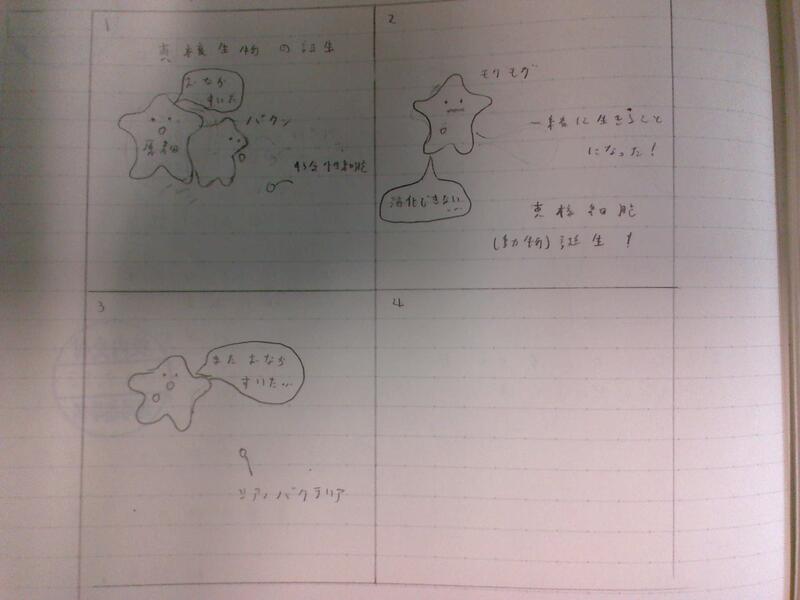 1
真核生物の誕生
おなか
すいた
原細
バタン
好気性細胞
2
モグモグ
一緒に生きること
になった！
消化できない…
真核細胞
(動物)誕生！
3
また おなか
すいた…
シアノバクテリア
4